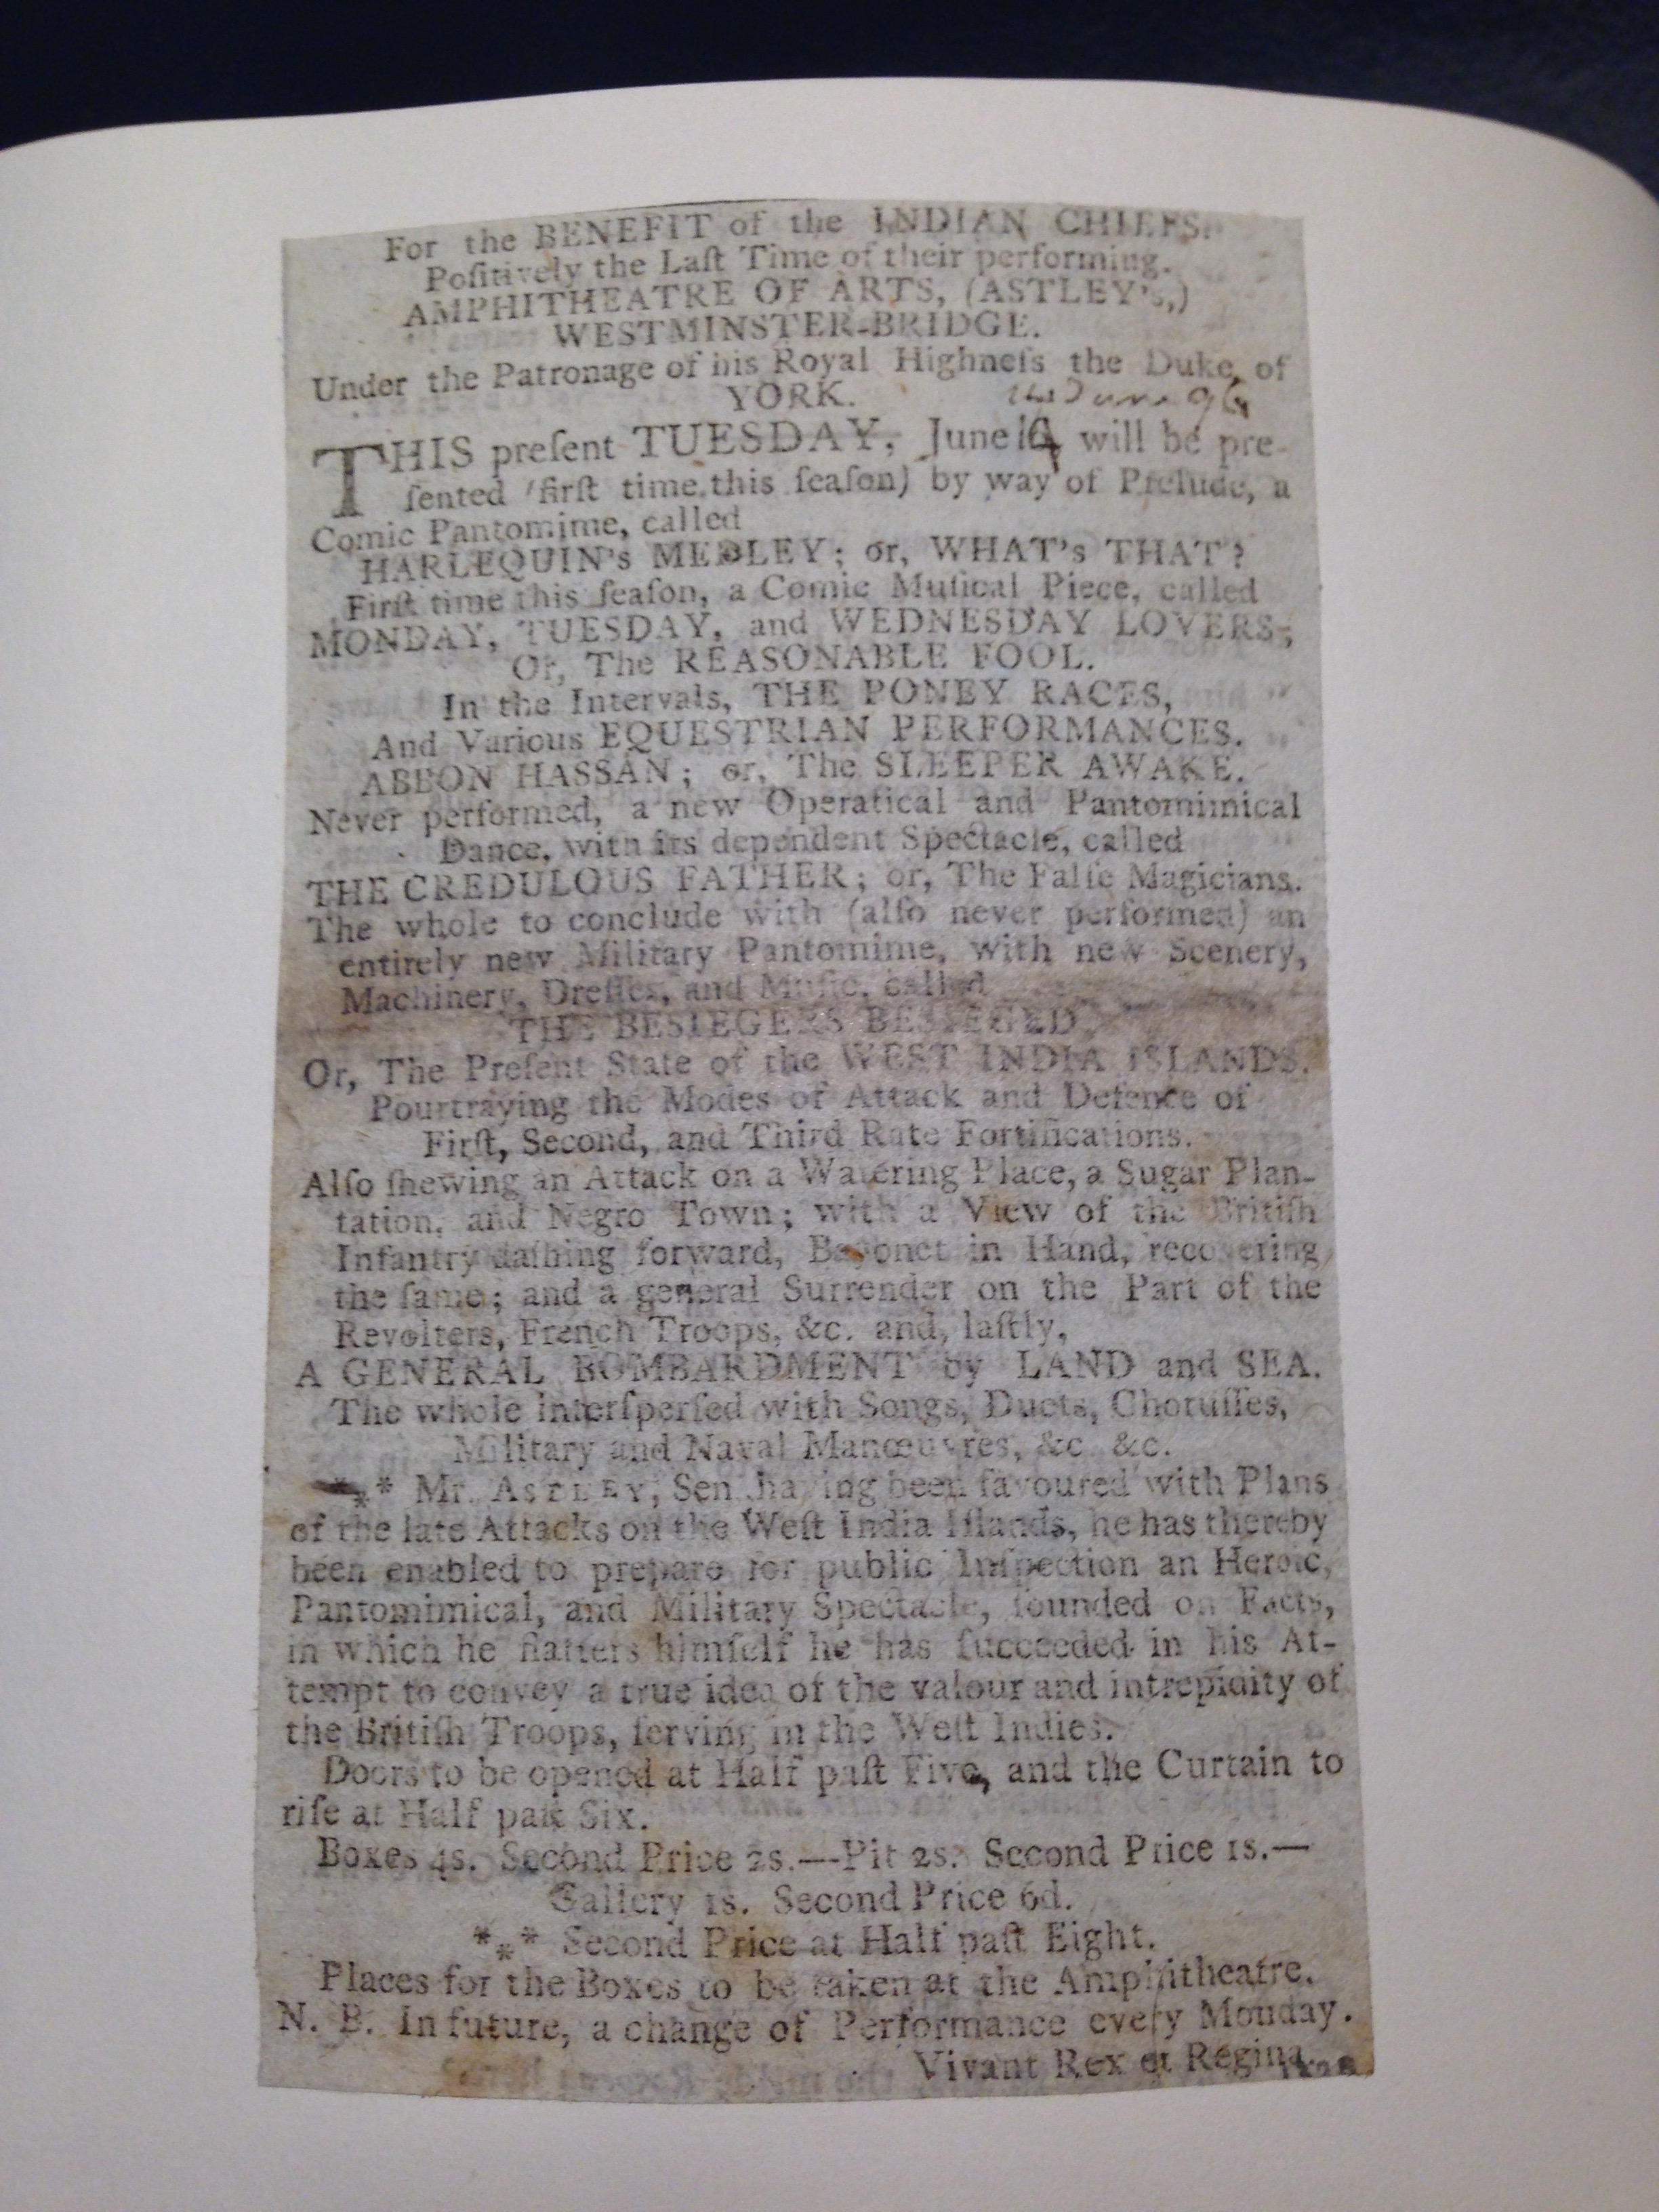 For the BENEFIT of the INDIAN CHIEFS.
Poſitively the Laſt Time of their performing.
AMPHITHEATRE OF ARTS, (ASTLEY's,)
WESTMINSTER-BRIDGE.
Under the Patronage of his Royal Highneſs the Duke of
YORK.
June 96
THIS preſent TUESDAY, June will be pre-
ſented (firſt time this ſeaſon) by way of Prelude, a
Comic Pantomime, called
HARLEQUIN's MEDLEY; or, WHAT's THAT?
Firſt time this ſeaſon, a Comic Muſical Piece, called
MONDAY, TUESDAY, and WEDNESDAY LOVERS;
Or, The REASONABLE FOOL.
In the Intervals, THE PONEY RACES,
And Various EQUESTRIAN PERFORMANCES.
ABBON HASSAN; or, The SLEEPER AWAKE.
Never performed, a new Operatical and Pantomimical
Dance, with its dependent Spectacle, called
THE CREDULOUS FATHER; or, The Falſe Magicians.
The whole to conclude with (alſo never performed) an
entirely new Military Pantomime, with new Scenery,
Machinery, Dreſſes, and Muſic, called
THE BESIEGERS BESIEGED,
Or, The Preſent State of the WEST INDIA ISLANDS.
Pourtraying the Modes of Attack and Defence of
Firſt, Second, and Third Rate Fortifications.
Alſo ſhewing an Attack on a Watering Place, a Sugar Plan-
tation, and Negro Town; with a View of the Britiſh
Infantry daſhing forward, Bayonet in Hand, recovering
the ſame; and a general Surrender on the Part of the
Revolters, French Troops, &c. and, laſtly,
A GENERAL BOMBARDMENT by LAND and SEA.
The whole interſperſed with Songs, Duets, Choruſſes,
Military and Naval Manœuvres, &c. &c.
*⁎* Mr. ASTLEY, Sen. having been favoured with Plans
of the late Attacks on the Weſt India Iſlands, he has thereby
been enabled to prepare for public Inſpection an Heroic,
Pantomimical, and Military Spectacle, founded on Facts,
in which he flatters himſelf he has ſucceeded in his At-
tempt to convey a true idea of the valour and intrepidity of
the Britiſh Troops, ſerving in the Weſt Indies.
Doors to be opened at Half paſt Five, and the Curtain to
riſe at Half paſt Six.
Boxes 4s. Second Price 2s.—Pit 2s. Second Price 1s.—
Gallery 1s. Second Price 6d.
*⁎* Second Price at Half paſt Eight.
Places for the Boxes to be taken at the Amphitheatre.
N. B. In future, a change of Performance every Monday.
Vivant Rex et Regina